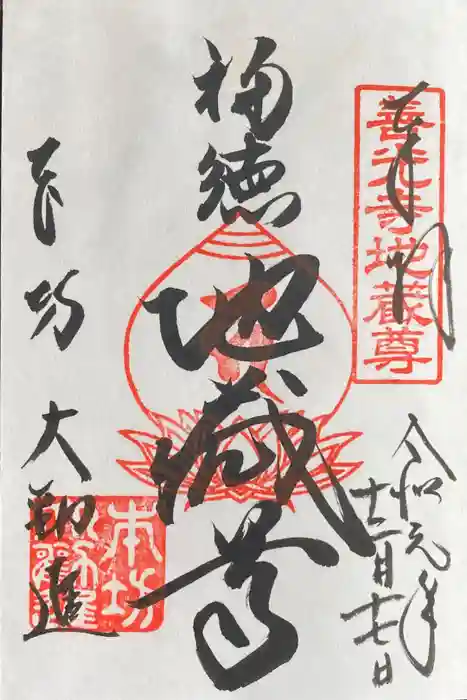 奉拝
善光寺地蔵尊
令和元年
十二月十七日
福徳
地蔵尊
本坊
大勧進
本坊